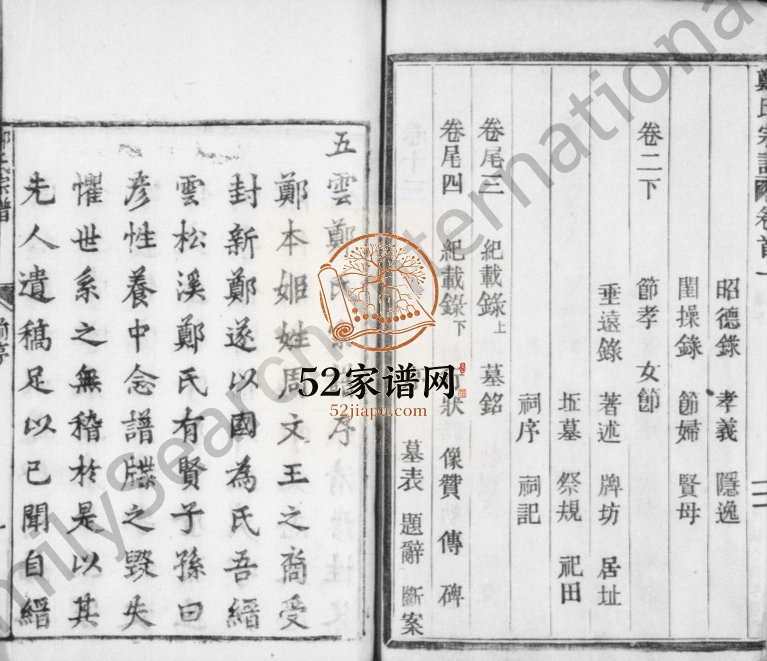 鄭氏宗譜 卷首一
二
昭德錄 孝義 隱逸
閨操錄 節婦 賢母
節孝 女節
卷二下
垂遠錄 著述 牌坊 居址
坵墓 祭規 祀田
祠序 祠記
卷尾三 紀載錄上 墓銘
卷尾四 紀載錄下 狀 像贊 傳 碑
墓表 題辭 斷案
五雲鄭 序
鄭本姬姓周文王之裔受
封新鄭遂以國為氏吾縉
雲松溪鄭氏有賢子孫曰
彥性養中念譜牒之毀失
懼世系之無稽於是以其
先人遺稿足以已聞自縉
宗譜
一
52家谱网
52jiapu.com
milysearch International